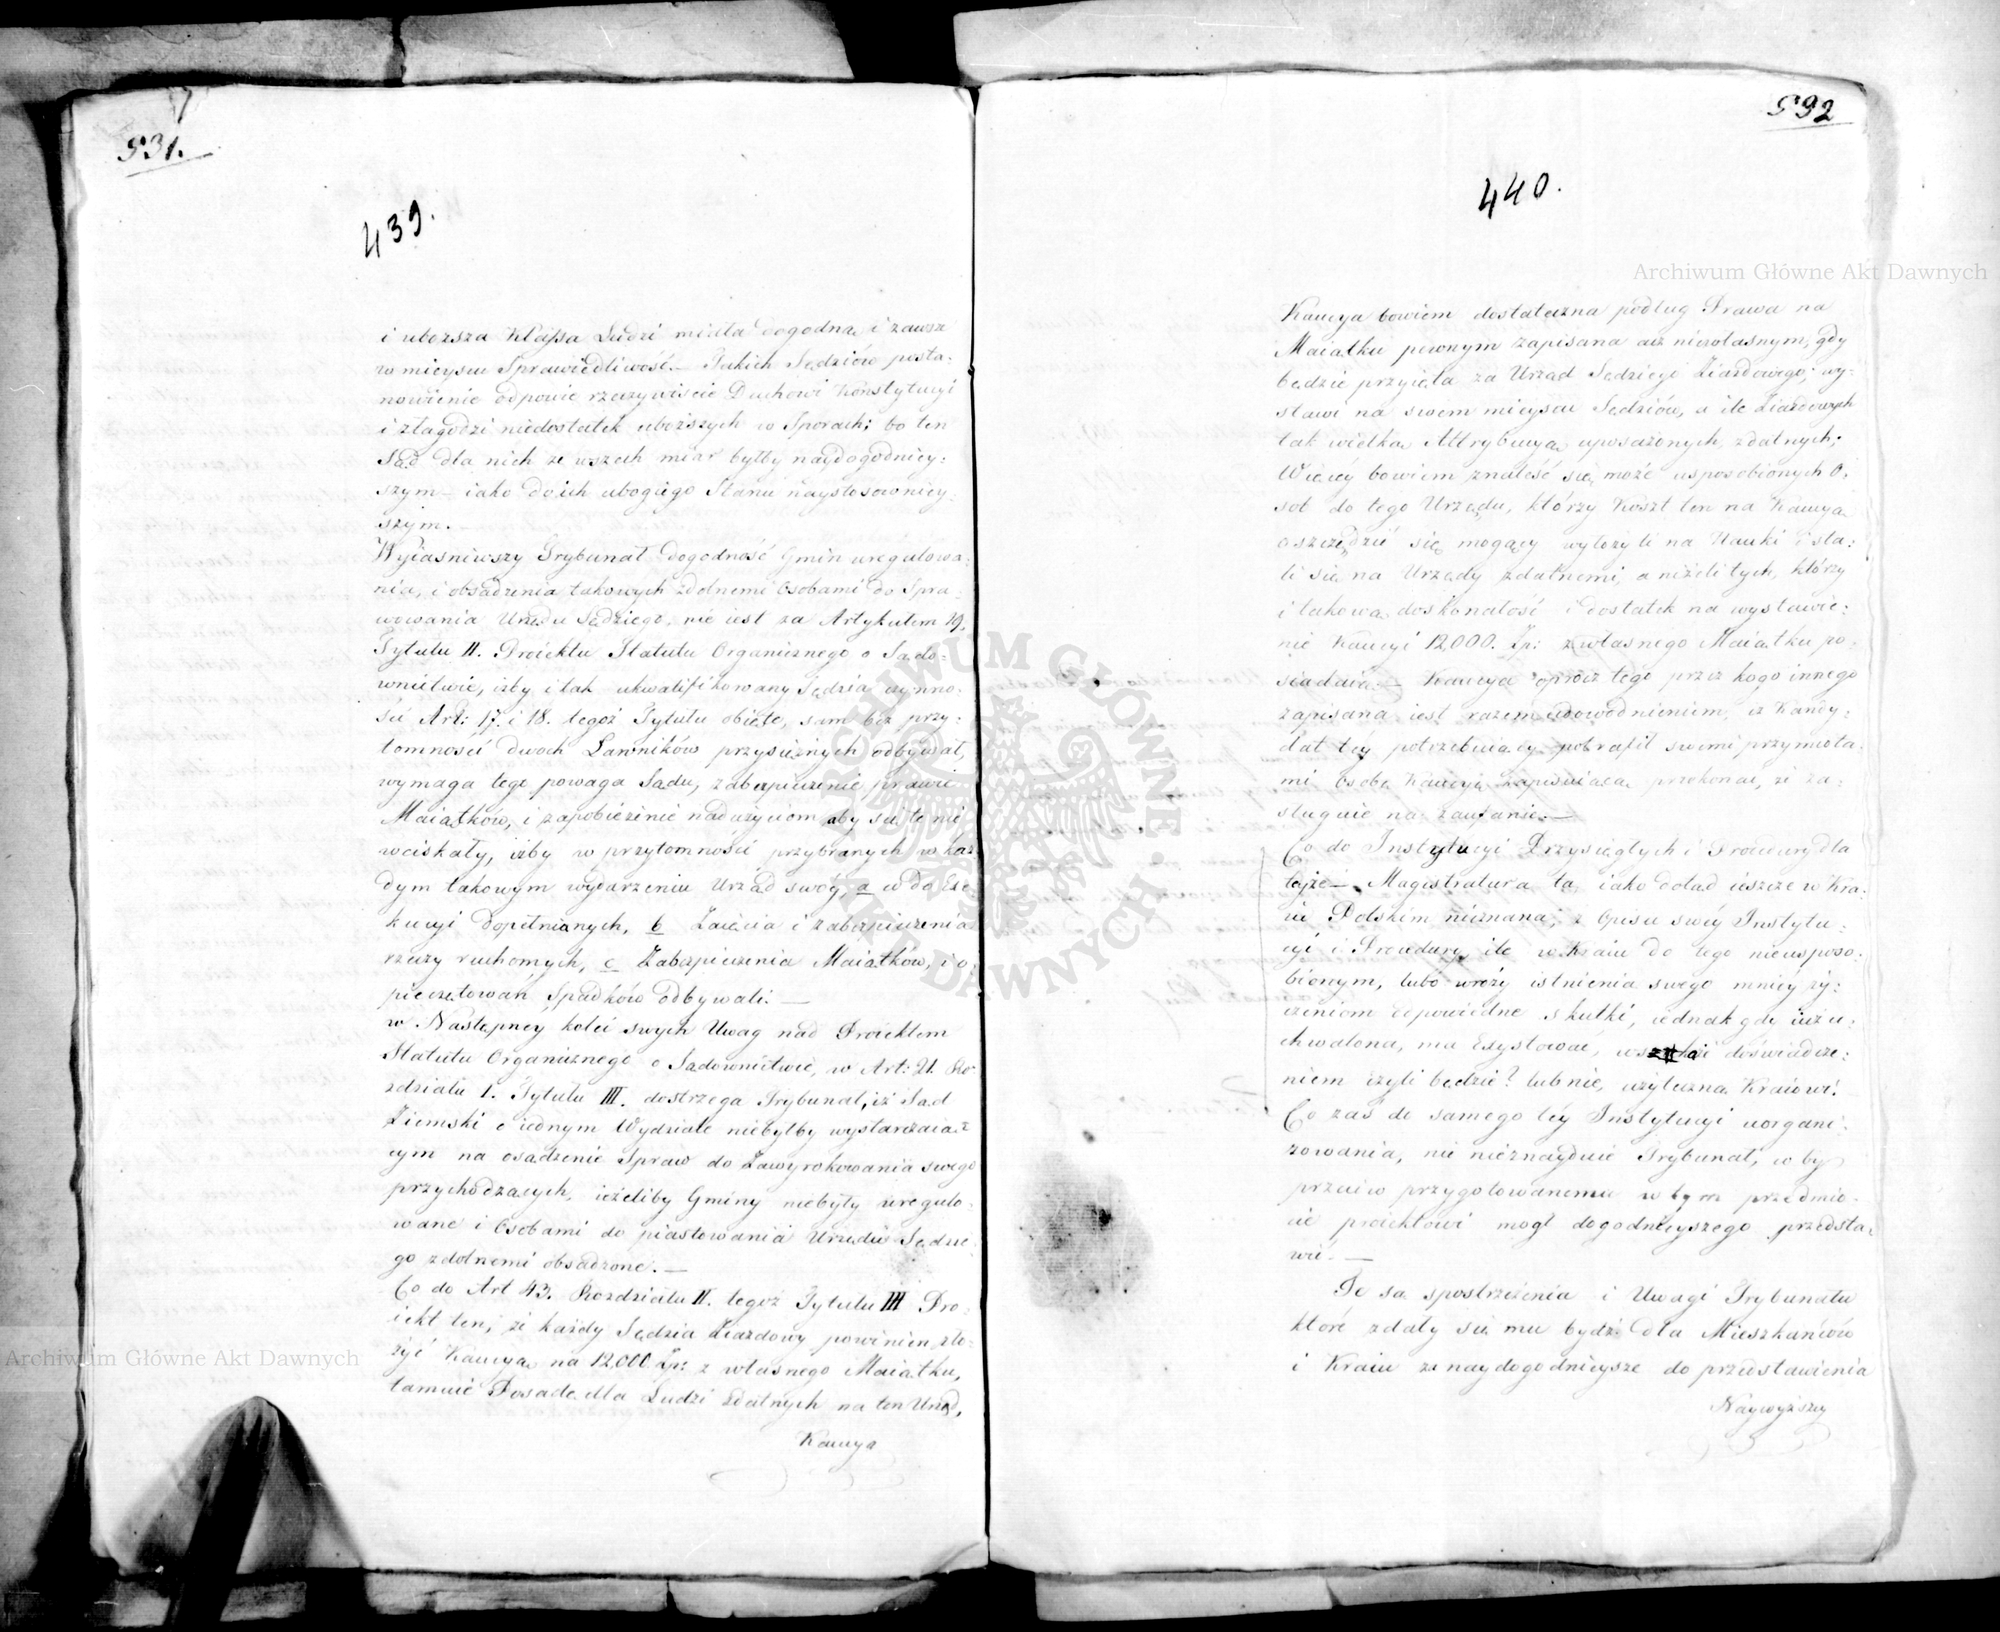 531.
439.
i uboższa Klassa Ludzi miała dogodną i zawsze
w mieyscu Sprawiedliwość. – Takich Sędziów posta-
nowienie odpowie rzeczywiście Duchowi Konstytucyi
i złagodzi niedostatek uboższych w Sporach; bo ten
Sąd dla nich ze wszech miar byłby naydogodniey-
szym – iako do ich ubogiego Stanu naystosowniey-
szym.
Wyiaśniwszy Trybunał dogodność Gmin uregulowa-
nia, i obsadzenia takowych zdolnemi Osobami do Spra-
wowania Urzędu Sędziego, nie iest za Artykułem 19.
Tytułu II. Proiektu Statutu Organicznego o Sądo-
wnictwie, iżby i tak ukwalifikowany Sędzia czynno-
ści Art: 17. i 18. tegoż Tytułu obięte, sam bez przy-
tomności dwoch Ławników przysiężnych odbywał,
wymaga tego powaga Sądu, zabezpieczenie prawie
Maiątków, i zapobieżenie nadużyciom aby się te nie
wciskały, iżby w przytomności przybranych w każ-
dym takowym wydarzeniu Urząd swóy, a w do Exe-
kucyi dopełnianych, b Zaięcia i zabezpieczenia
rzeczy ruchomych, c Zabezpieczenia Maiątków, i o-
pieczętowań Spadków odbywali. –
w Następney kolei swych Uwag nad Proiektem
Statutu Organicznego o Sądownictwie, w Art: 21. Ro-
zdziału I. Tytułu III. dostrzega Trybunał, iż Sąd
Ziemski o iednym Wydziale niebyłby wystarczaią-
cym na osądzenie Spraw do Zawyrokowania swego
przychodzących, ieżeliby Gminy niebyły uregulo-
wane i Osobami do piastowania Urzędu Sędzie-
go zdolnemi obsadzone. –
Co do Art 43. Rozdziału II. tegoż Tytułu III Pro-
iekt ten, że każdy Sędzia Ziazdowy powinien zło-
żyć Kaucyą na 12,000 Zp: z własnego Maiątku,
tamuie Posadę dla Ludzi zdatnych na ten Urząd,
Kaucya
592
440.
Kaucya bowiem dostateczna podług Prawa na
Maiątku pewnym zapisana acz niewłasnym, gdy
będzie przyięta za Urząd Sędziego Ziazdowego, wy-
stawi na swem mieyscu Sędziów, a ile Ziazdowych
tak wielką Attrybucyą uposażonych, zdatnych.
Więcéy bowiem znaleść się może usposobionych O-
sob do tego Urzędu, którzy Koszt ten na Kaucyą
oszczędzić się mogący wyłożyli na Nauki i sta-
li się na Urzędy zdatnemi, a niżeli tych, którzy
i takową doskonałość i dostatek na wystawie-
nie Kaucyi 12,000. Zp: z własnego Maiątku po-
siadaią. – Kaucya oprócz tego przez kogo innego
zapisana iest razem udowodnieniem, iż Kandy-
dat tey potrzebuiący potrafił swemi przymiota-
mi Osobę Kaucyą zapisuiącą przekonać, że za-
sługuie na zaufanie. –
Co do Instytucyi Przysięgłych i Procedury dla
teyże – Magistratura ta iako dotąd ieszcze w Kra-
iu Polskim nieznana, z Opisu swéy Instytu-
cyi i Procedury, ile w Kraiu do tego nieusposo-
bionym, lubo wróży istnienia swego mniéy ży-
czeniom odpowiedne skutki, iednak gdy iuż u-
chwalona, ma Exystować, doświadcze-
niem czyli będzie? lub nie, użyteczna Kraiowi.
Co zaś do samego téy Instytucyi uorgani-
zowania, nic nieznayduie Trybunał, coby
przeciw przygotowanemu w tym przedmio-
cie proiektowi mogł dogodnieyszego przedsta-
wić. –
Te są spostrzeżenia i Uwagi Trybunału
które zdały się mu bydź dla Mieszkańców
i Kraiu za naydogodnieysze do przedstawienia
Naywyższey
Archiwum Główne Akt Dawnych
Archiwum Główne Akt Dawnych
ARCHIWUM GŁÓWNE AKT DAWNYCH